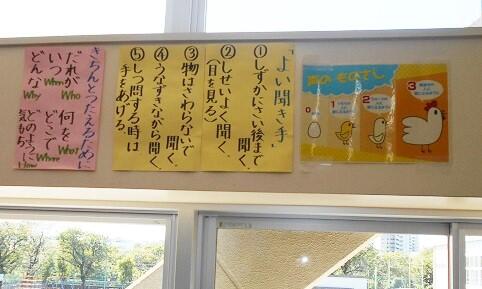 「よい聞き手」
①しずかにさい後まで
聞く。
②しせいよく聞く。
(目を見る)
③物はさわらないで
聞く。
④うなずきながら聞く。
⑤しつ問する時は
手をあげる。
声のものさし
0
1
2
3
きちんとつたえるために
だれが
Who
何を
What
いつ
When
どこで
Where
どんな
Why
どのように
How
気もち